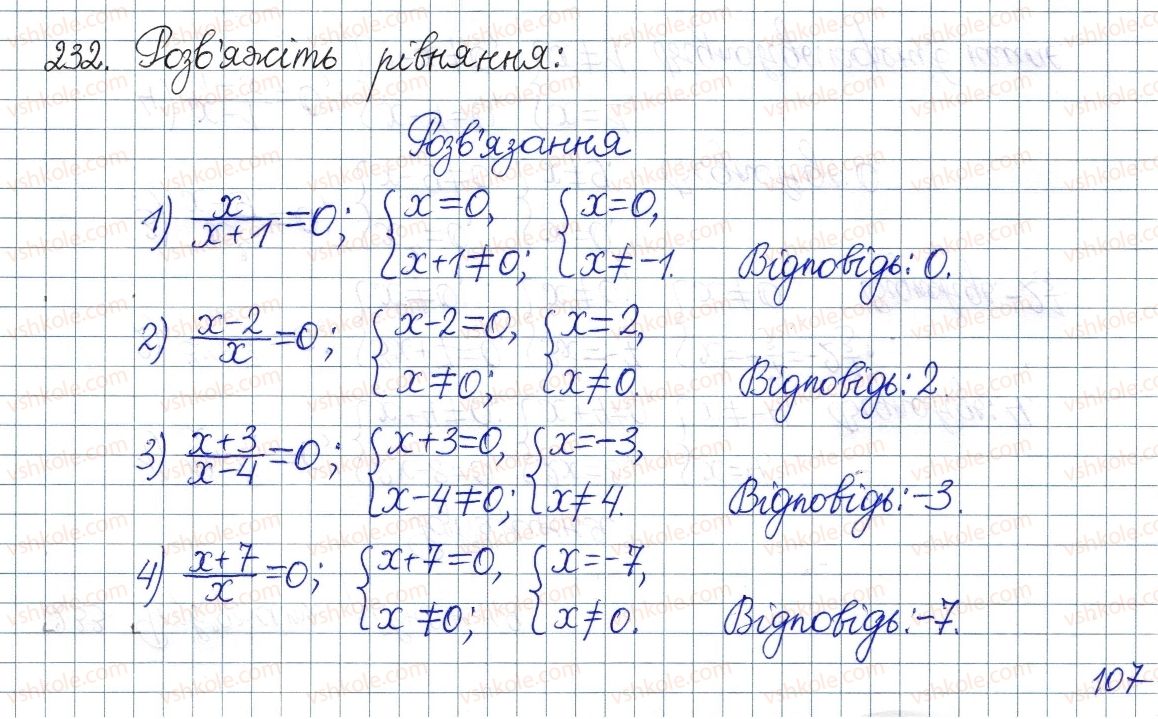 232. Розв'яжіть рівняння:
Розв'язання
1) x/(x+1)=0; {x=0, x+1≠0; {x=0, x≠-1. Відповідь: 0.
2) (x-2)/x=0; {x-2=0, x≠0; {x=2, x≠0. Відповідь: 2.
3) (x+3)/(x-4)=0; {x+3=0, x-4≠0; {x=-3, x≠4. Відповідь: -3.
4) (x+7)/x=0; {x+7=0, x≠0; {x=-7, x≠0. Відповідь: -7.
107
vshkole.com